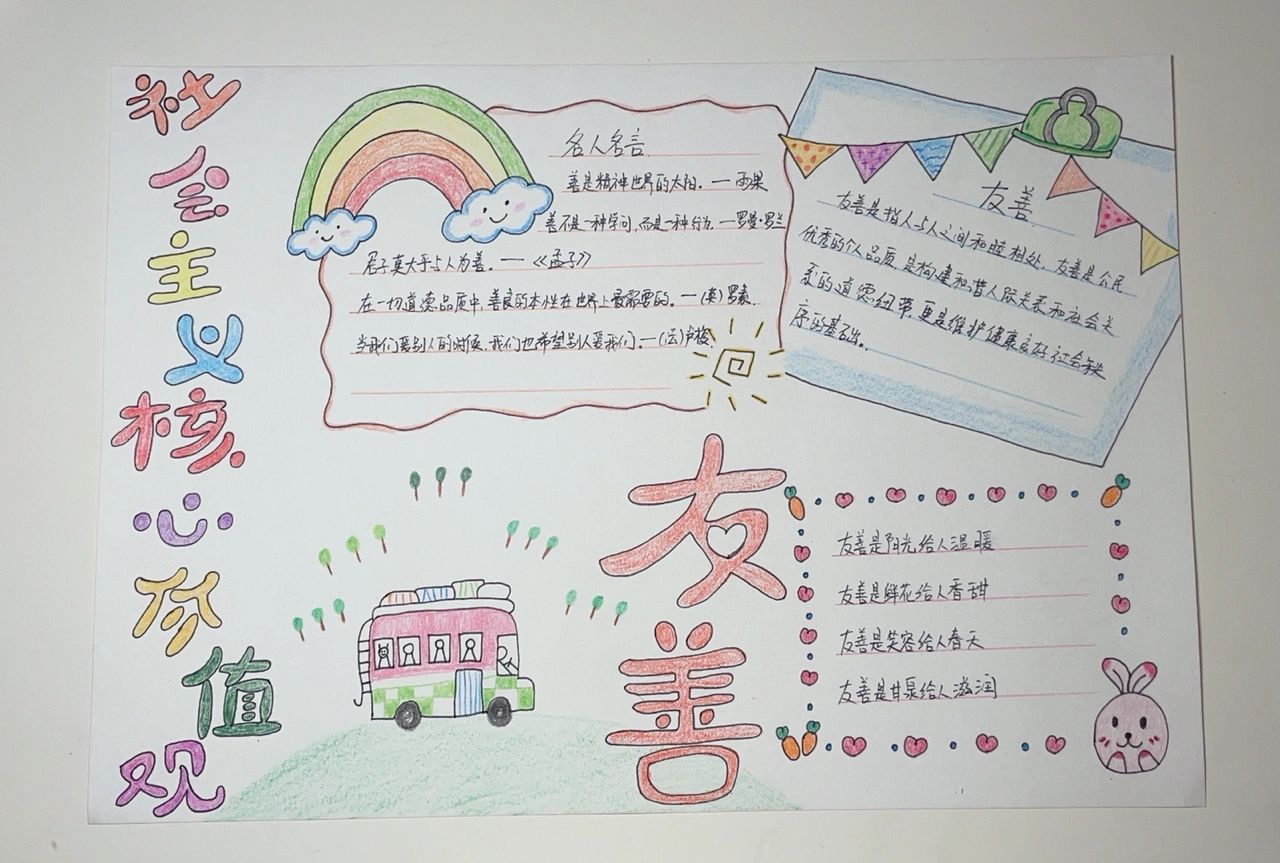 社会主义核心价值观
名人名言
善是精神世界的太阳。—雨果
善不是一种学问,而是一种行为。—罗曼·罗兰
君子莫大乎与人为善。—《孟子》
在一切道德品质中,善良的本性在世界上最需要的。—(英)罗素.
当我们爱别人的时候,我们也希望别人爱我们.—(法)卢梭
友善
友善是指人与人之间和睦相处,友善是公民
优秀的个人品质,是构建和谐人际关系和社会关
系的道德纽带,更是维护健康良好社会秩
序的基础。
友善
友善是阳光给人温暖
友善是鲜花给人香甜
友善是笑容给人春天
友善是甘泉给人滋润